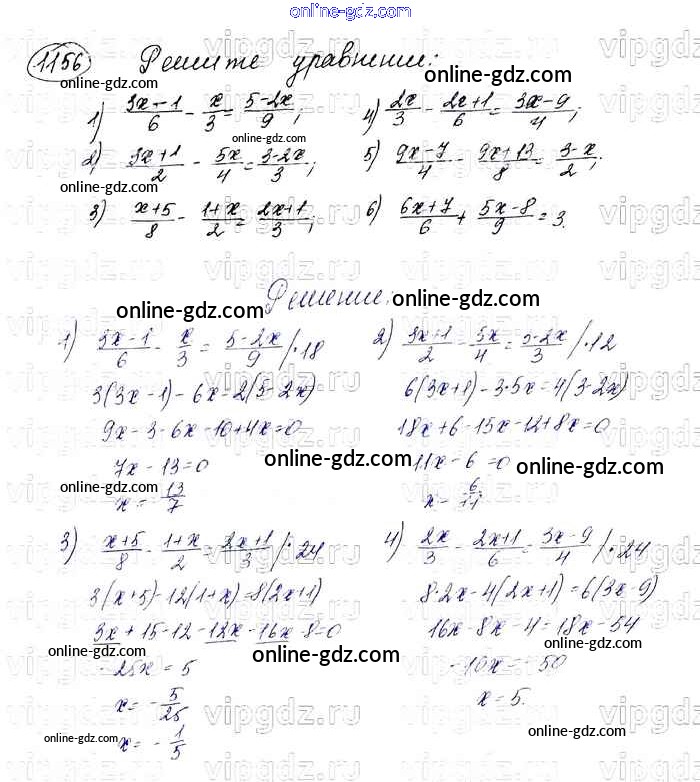 online-gdz.com
1156 Решите уравнении:
online-gdz.com
1) (3x-1)/6 - x/3 = (5-2x)/9; 4) 2x/3 - (2x+1)/6 = (3x-9)/4;
online-gdz.com
2) (3x+1)/2 - 5x/4 = (3-2x)/3; 5) (9x-7)/4 - (9x+13)/8 = (3-x)/2;
online-gdz.com
online-gdz.com
3) (x+5)/8 - (1+x)/2 = (2x+1)/3; 6) (6x+7)/6 + (5x-8)/9 = 3.
Решение:
online-gdz.com
online-gdz.com
1) (3x-1)/6 - x/3 = (5-2x)/9 /·18 2) (3x+1)/2 - 5x/4 = (3-2x)/3 /·12
3(3x-1)-6x-2(5-2x) 6(3x+1)-3·5x=4(3-2x)
9x-3-6x-10+4x=0 18x+6-15x-12+8x=0
7x-13=0 11x-6=0
online-gdz.com
online-gdz.com
x=-13/7 x-6/11
3) (x+5)/8 - (1+x)/2 = (2x+1)/3 /·24 4) 2x/3 - (2x+1)/6 = (3x-9)/4 /·24
3(x+5)-12(1+x)=8(2x+1) 8·2x-4(2x+1)=6(3x-9)
3x+15-12-12x-16x-8=0 16x-8x-4=18x-54
online-gdz.com
-25x=5 -10x=-50
x=-5/25 x=5.
x=-1/5
online-gdz.com
online-gdz.com